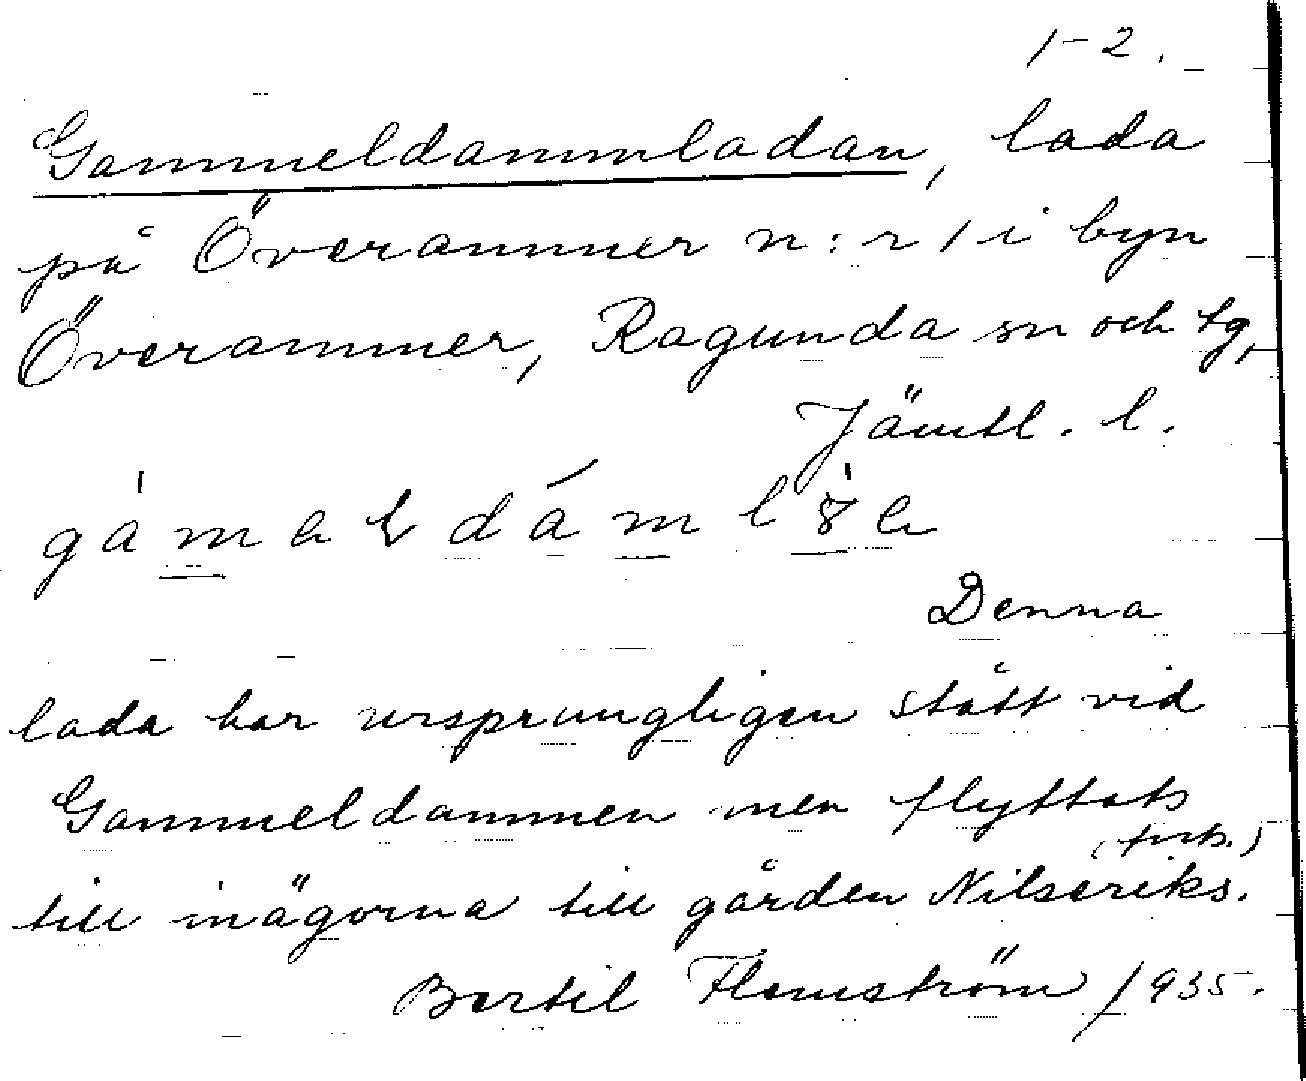 1-2.
Gammeldammladan, lada
på Överammer n:r 1 i byn
Överammer, Ragunda sn och tg,
Jämtl. l.
Denna
lada har ursprungligen stått vid
Gammeldammen men flyttats
till inägorna till gården Nilseriks.
Bertil Flemström 1935.